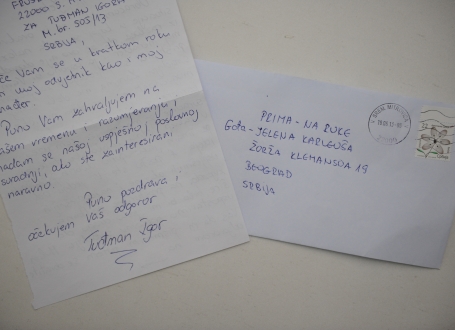 22000 S. M
ZA TUĐMAN IGORA
M. br. 505/13
SRBIJA,
će Vam se u kratkom roku
moj odvjetnik kao i moj
Puno Vam zahvaljujem na
vremenu i razumjevanju i
nadam se našoj uspješnoj poslovnoj
suradnji, ako ste zainteresirani
naravno.
Puno pozdrava i
očekujem Vaš odgovor
Tuđman Igor
PRIMA - NA RUKE
Gđa - JELENA KARLEUŠA
ŽORŽA KLEMANSOA 19
BEOGRAD
SRBIJA